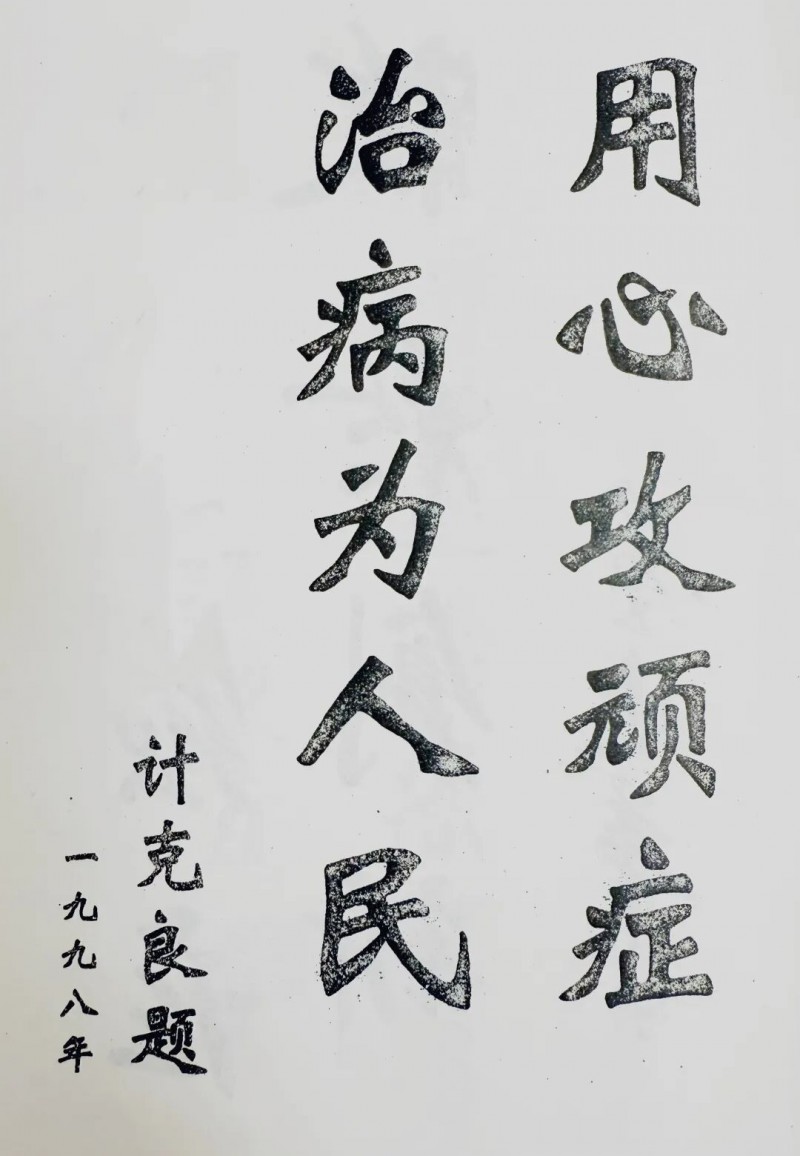 用心攻顽症
治病为人民
计克良题
一九九八年